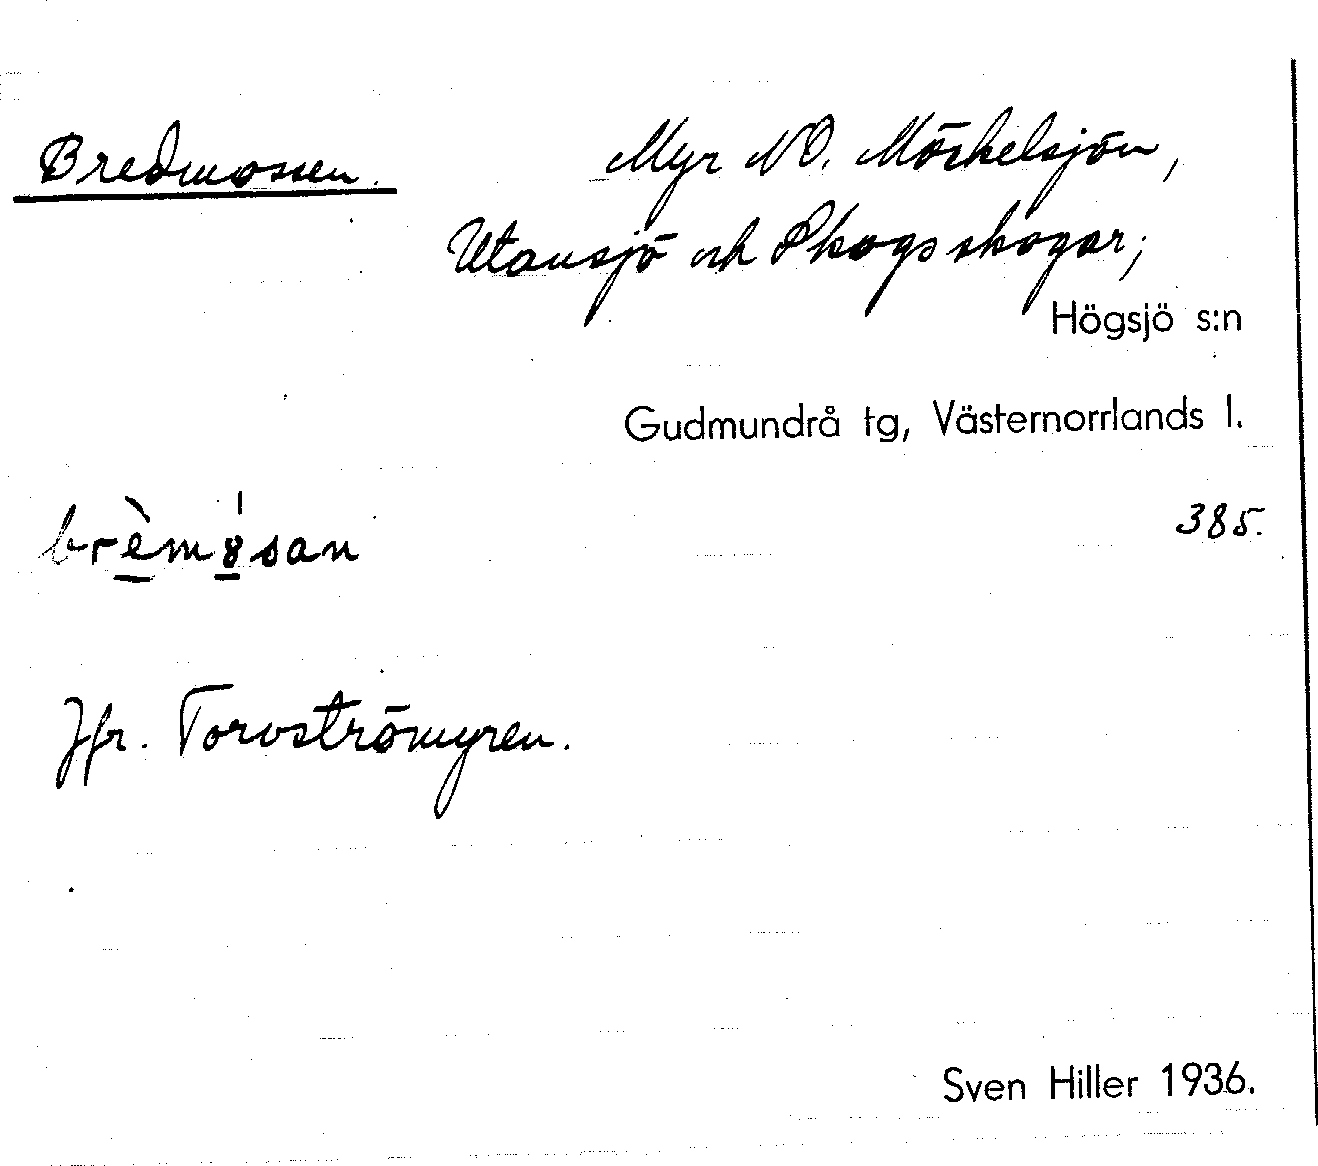 Bredmossen. Myr NO. Mörkelsjön,
Utansjö och Skogs skogar;
Högsjö s:n
Gudmundrå tg, Västernorrlands l.
385.
Jfr. Torvströmyren.
Sven Hiller 1936.